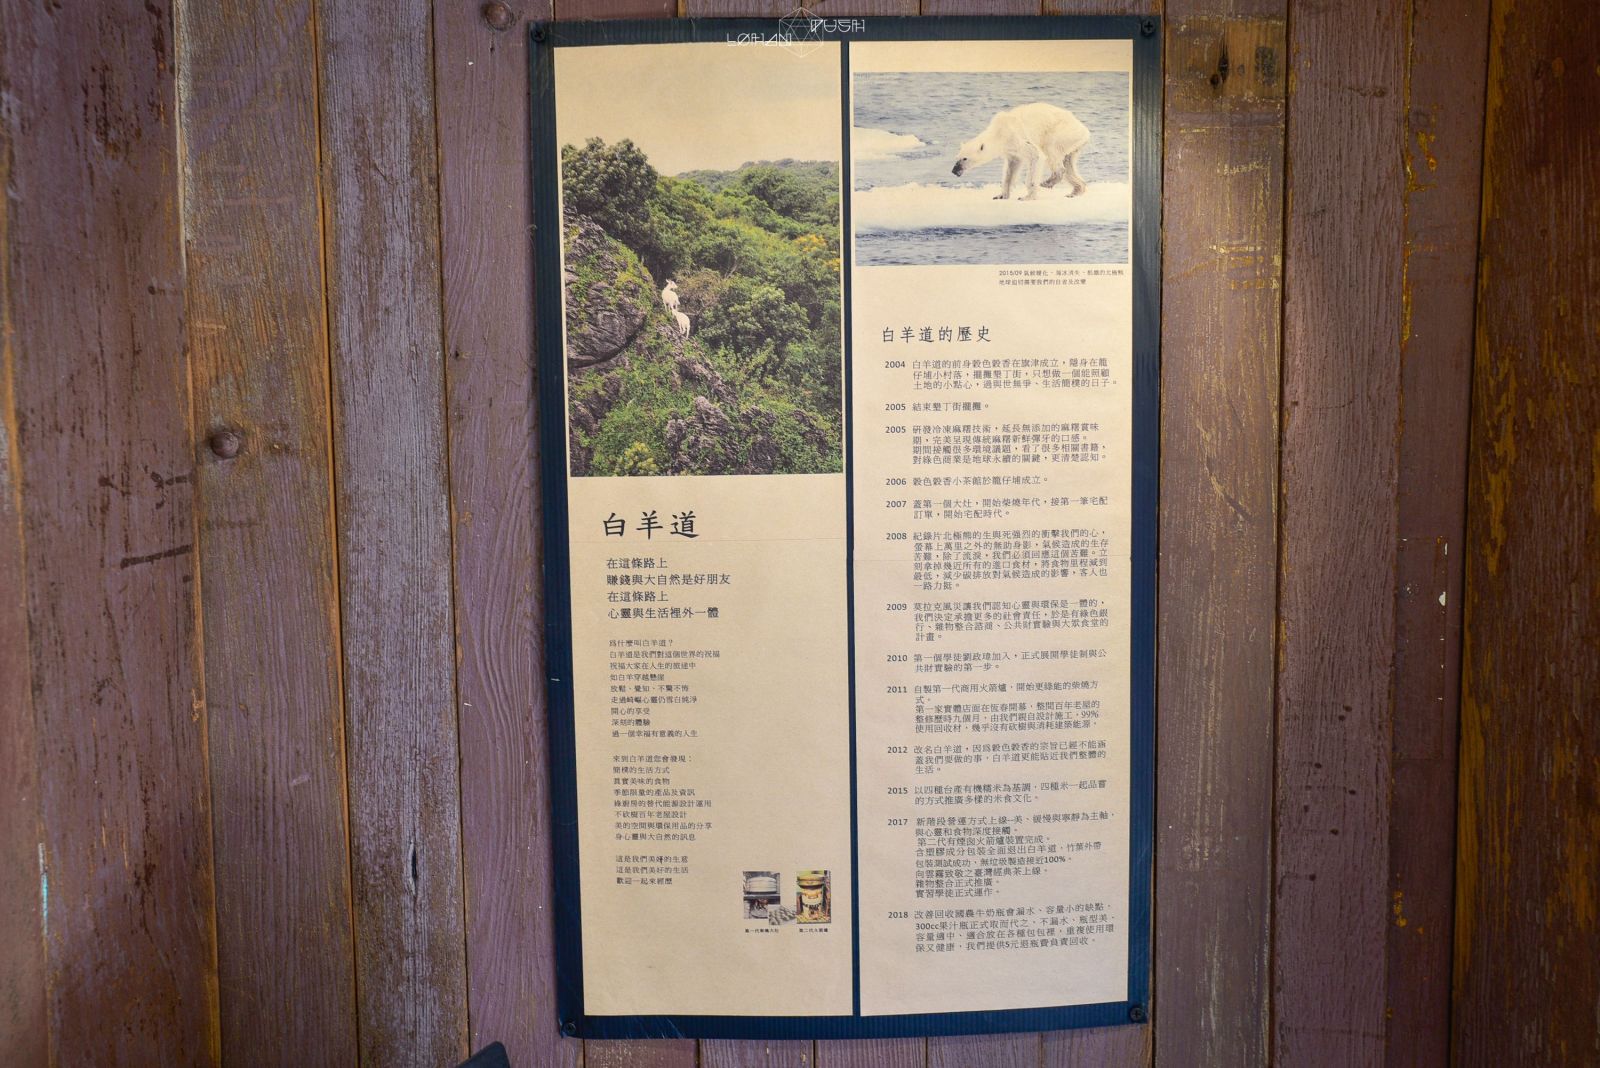 LOHAN PUSH
白羊道
在這條路上
賺錢與大自然是好朋友
在這條路上
心靈與生活裡外一體
為什麼叫白羊道？
白羊道是我們對這個世界的祝福
祝福大家在人生的旅途中
如白羊穿越懸崖
放鬆、覺知、不驚不怖
走過崎嶇心靈仍雪白純淨
開心的享受
深刻的體驗
過一個幸福有意義的人生
來到白羊道您會發現：
簡樸的生活方式
真實美味的食物
季節限量的產品及資訊
綠廚房的替代能源設計運用
不砍樹百年老屋設計
美的空間與環保用品的分享
身心靈與大自然的訊息
這是我們美好的生意
這是我們美好的生活
歡迎一起來經歷
第一代柴燒大灶
第二代火箭爐
2015/09 氣候暖化、海冰消失、飢餓的北極熊
地球迫切需要我們的自省及改變
白羊道的歷史
2004 白羊道的前身穀色穀香在旗津成立，隱身在龍
仔埔小村落，擺攤墾丁街，只想做一個能照顧
土地的小點心，過與世無爭、生活簡樸的日子。
2005 結束墾丁街擺攤。
2005 研發冷凍麻糬技術，延長無添加的麻糬賞味
期，完美呈現傳統麻糬新鮮彈牙的口感。
期間接觸很多環境議題，看了很多相關書籍，
對綠色商業是地球永續的關鍵，更清楚認知。
2006 穀色穀香小茶館於龍仔埔成立。
2007 蓋第一個大灶，開始柴燒年代，接第一筆宅配
訂單，開始宅配時代。
2008 紀錄片北極熊的生與死強烈的衝擊我們的心，
螢幕上萬里之外的無助身影，氣候造成的生存
苦難，除了流淚，我們必須回應這個苦難。立
刻拿掉幾近所有的進口食材，將食物里程減到
最低，減少碳排放對氣候造成的影響，客人也
一路力挺。
2009 莫拉克風災讓我們認知心靈與環保是一體的，
我們決定承擔更多的社會責任，於是有綠色銀
行、雜物整合諮商、公共財實驗與大眾食堂的
計畫。
2010 第一個學徒劉政瑋加入，正式展開學徒制與公
共財實驗的第一步。
2011 自製第一代商用火箭爐，開始更綠能的柴燒方
式。
第一家實體店面在恆春開幕，整間百年老屋的
整修歷時九個月，由我們親自設計施工，99%
使用回收材，幾乎沒有砍樹與消耗建築能源。
2012 改名白羊道，因為穀色穀香的宗旨已經不能涵
蓋我們要做的事，白羊道更能貼近我們整體的
生活。
2015 以四種台產有機糯米為基調，四種米一起品嘗
的方式推廣多樣的米食文化。
2017 新階段營運方式上線--美、緩慢與寧靜為主軸，
與心靈和食物深度接觸。
第二代有煙囪火箭爐裝置完成。
含塑膠成分包裝全面退出白羊道，竹葉外帶
包裝測試成功、無垃圾製造接近100%。
向雲霧致敬之臺灣經典茶上線。
雜物整合正式推廣。
實習學徒正式運作。
2018 改善回收國農牛奶瓶會漏水、容量小的缺點，
300cc果汁瓶正式取而代之、不漏水、瓶型美、
容量適中、適合放在各種包包裡，重複使用環
保又健康，我們提供5元退瓶費負責回收。